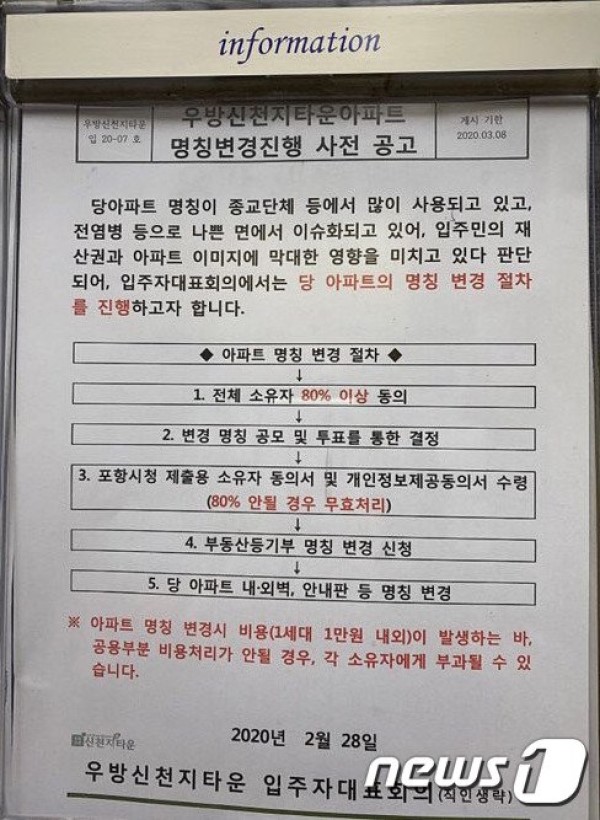 information
우방신천지타운
입 20-07 호
우방신천지타운아파트
명칭변경진행 사전 공고
게시 기한
2020.03.08
당아파트 명칭이 종교단체 등에서 많이 사용되고 있고,
전염병 등으로 나쁜 면에서 이슈화되고 있어, 입주민의 재
산권과 아파트 이미지에 막대한 영향을 미치고 있다 판단
되어, 입주자대표회의에서는 당 아파트의 명칭 변경 절차
를 진행하고자 합니다.
◆ 아파트 명칭 변경 절차 ◆
↓
1. 전체 소유자 80% 이상 동의
↓
2. 변경 명칭 공모 및 투표를 통한 결정
↓
3. 포항시청 제출용 소유자 동의서 및 개인정보제공동의서 수령
(80% 안될 경우 무효처리)
↓
4. 부동산등기부 명칭 변경 신청
↓
5. 당 아파트 내·외벽, 안내판 등 명칭 변경
※ 아파트 명칭 변경시 비용(1세대 1만원 내외)이 발생하는 바,
공용부분 비용처리가 안될 경우, 각 소유자에게 부과될 수 있
습니다.
2020년 2월 28일
신천지타운
우방신천지타운 입주자대표회의(직인생략)
news1